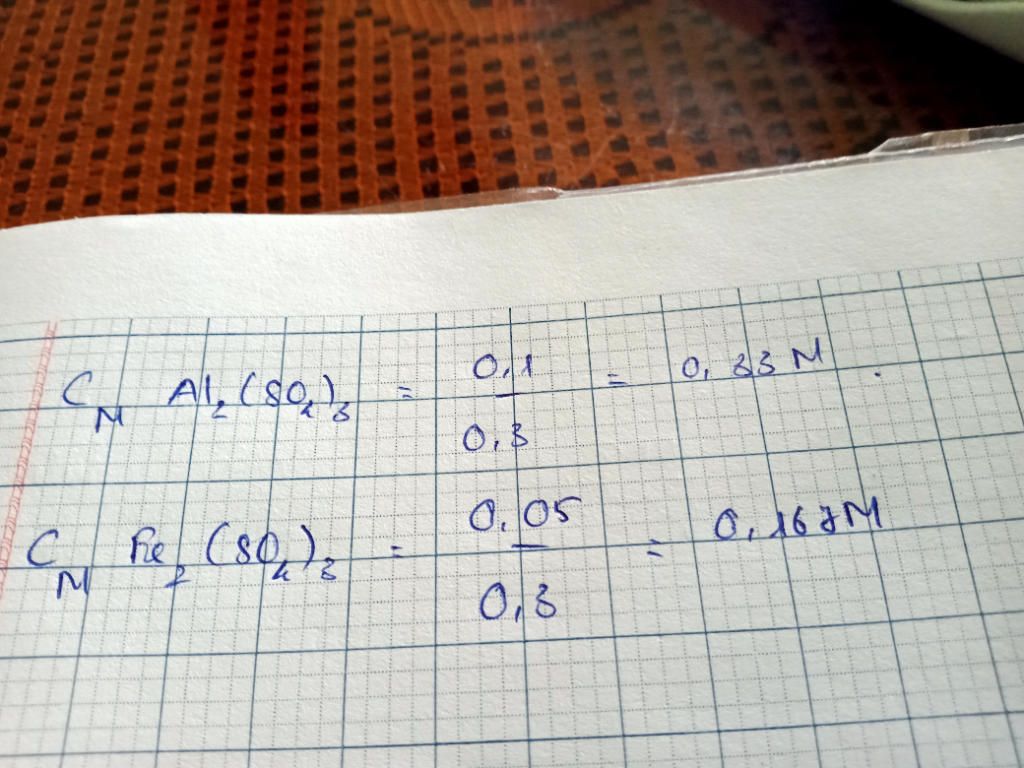 C_M Al₂(SO₄)₃ = 0,1 / 0,3 = 0,33 M .
C_M Fe₂(SO₄)₃ = 0,05 / 0,3 = 0,167M